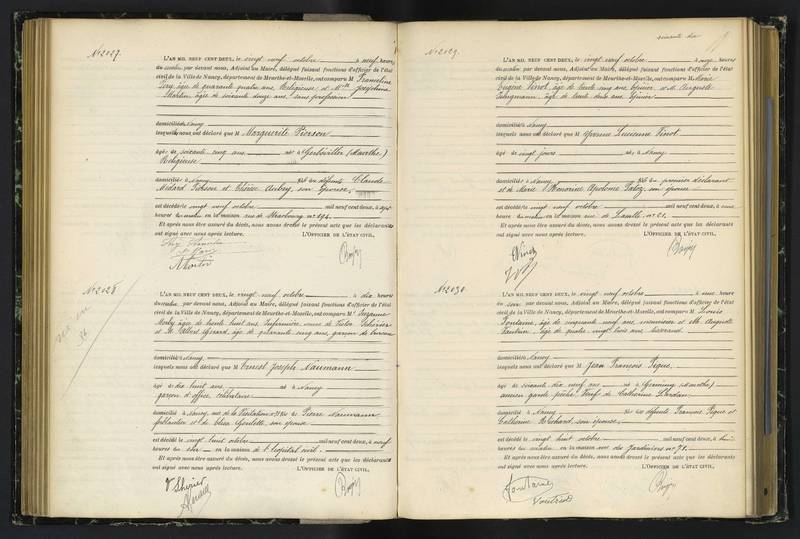 N°2027.
L'AN MIL NEUF CENT DEUX, le vingt neuf octobre à neuf heures
du matin par devant nous, Adjoint au Maire, délégué faisant fonctions d'officier de l'état
civil de la Ville de Nancy, département de Meurthe-et-Moselle, ont comparu M Francéline
âgée de quarante quatre ans, Religieuse et Mlle Joséphine
Martin âgée de soixante douze ans, sans profession
domiciliés à Nancy
lesquels nous ont déclaré que M Marguerite Pierson
âgé de soixante cinq ans né à Gerbéviller (Meurthe)
Religieuse
domicilié à Nancy fille de défunts Claude
Médard Pierson et Thérèse Aubry, son épouse,
est décédé le vingt neuf octobre mil neuf cent deux, à sept
heures du matin en la maison rue de Strasbourg n° 194.
Et après nous être assuré du décès, nous avons dressé le présent acte que les déclarants
ont signé avec nous après lecture. L'OFFICIER DE L'ÉTAT CIVIL,
N°2028
L'AN MIL NEUF CENT DEUX, le vingt neuf octobre à dix heures
du matin, par devant nous, Adjoint au Maire, délégué faisant fonctions d'officier de l'état
civil de la Ville de Nancy, département de Meurthe-et-Moselle, ont comparu M Suzanne
âgée de trente huit ans, Infirmière, veuve de Victor
et M. Albert Gérard, âgé de quarante cinq ans, garçon de bureau
domiciliés à Nancy
lesquels nous ont déclaré que M Ernest Joseph Naumann
âgé de dix huit ans né à Nancy
garçon d'office, célibataire
domicilié à Nancy, rue de la Visitation fils de Pierre Naumann
ferblantier et de Elisa son épouse
est décédé le vingt huit octobre mil neuf cent deux, à neuf
heures du soir en la maison de l'hôpital civil.
Et après nous être assuré du décès, nous avons dressé le présent acte que les déclarants
ont signé avec nous après lecture. L'OFFICIER DE L'ÉTAT CIVIL,
soixante dix
N°2029.
L'AN MIL NEUF CENT DEUX, le vingt neuf octobre à onze heures
du matin par devant nous, Adjoint au Maire, délégué faisant fonctions d'officier de l'état
civil de la Ville de Nancy, département de Meurthe-et-Moselle, ont comparu M. Marie
Eugène Vinot, âgé de trente cinq ans, Épicier et M. Auguste
âgé de trente trois ans
domiciliés à Nancy
lesquels nous ont déclaré que M Yvonne Lucienne Vinot
âgé de vingt jours né à Nancy
domicilié à Nancy fille du premier déclarant
et de Marie Honorine Apolonie son épouse
est décédé le vingt neuf octobre mil neuf cent deux, à
heures du matin en la maison rue de n° 21.
Et après nous être assuré du décès, nous avons dressé le présent acte que les déclarants
ont signé avec nous après lecture. L'OFFICIER DE L'ÉTAT CIVIL,
Vinot
N°2030
L'AN MIL NEUF CENT DEUX, le vingt neuf octobre à une heure
du soir par devant nous, Adjoint au Maire, délégué faisant fonctions d'officier de l'état
civil de la Ville de Nancy, département de Meurthe-et-Moselle, ont comparu M. Louis
Fontaine, âgé de cinquante neuf ans, menuisier et M. Auguste
Vautrin, âgé de quatre vingt trois ans
domiciliés à Nancy
lesquels nous ont déclaré que M Jean François Pigue
âgé de soixante dix neuf ans né à Germiny (Meurthe)
ancien garde pêche, Veuf de Catherine
domicilié à Nancy fils de défunts François Pigue et
Catherine Richard, son épouse,
est décédé le vingt huit octobre mil neuf cent deux, à huit
heures du matin en la maison rue des Jardiniers n° 71.
Et après nous être assuré du décès, nous avons dressé le présent acte que les déclarants
ont signé avec nous après lecture. L'OFFICIER DE L'ÉTAT CIVIL,
Fontaine
Vautrin